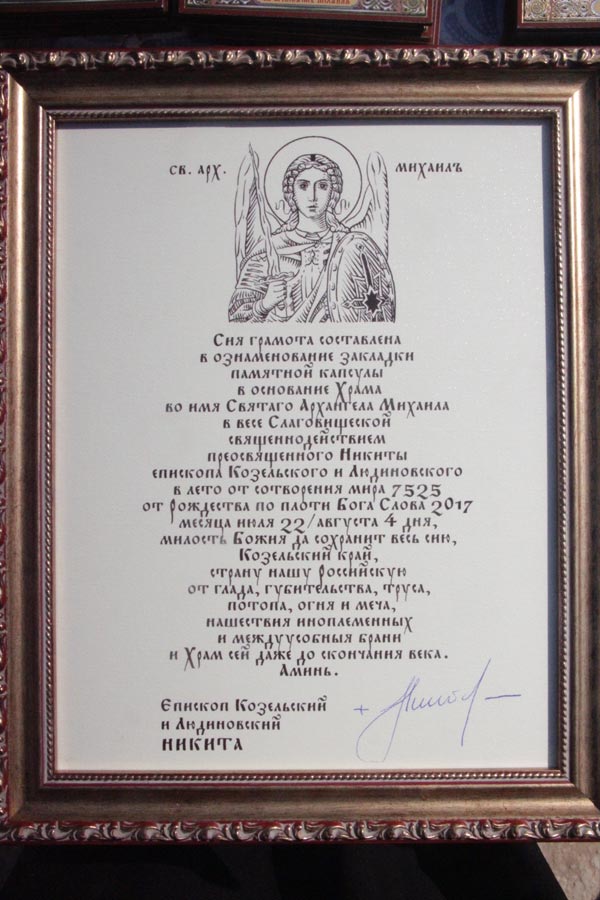 СВ. АРХ. МИХАИЛЪ
Сия грамота составлена
в ознаменование закладки
памятной капсулы
в основание Храма
во имя Святаго Архангела Михаила
в весе Слаговищеской
священнодействием
преосвященного Никиты
епископа Козельского и Людиновского
в лето от сотворения мира 7525
от рождества по плоти Бога Слова 2017
месяца июля 22/августа 4 дня,
милость Божия да сохранит весь сию,
Козельский край,
страну нашу Российскую
от глада, губительства, труса,
потопа, огня и меча,
нашествия иноплеменных
и междуусобныя брани
и Храм сей даже до скончания века.
Аминь.
Епископ Козельский
и Людиновский
НИКИТА